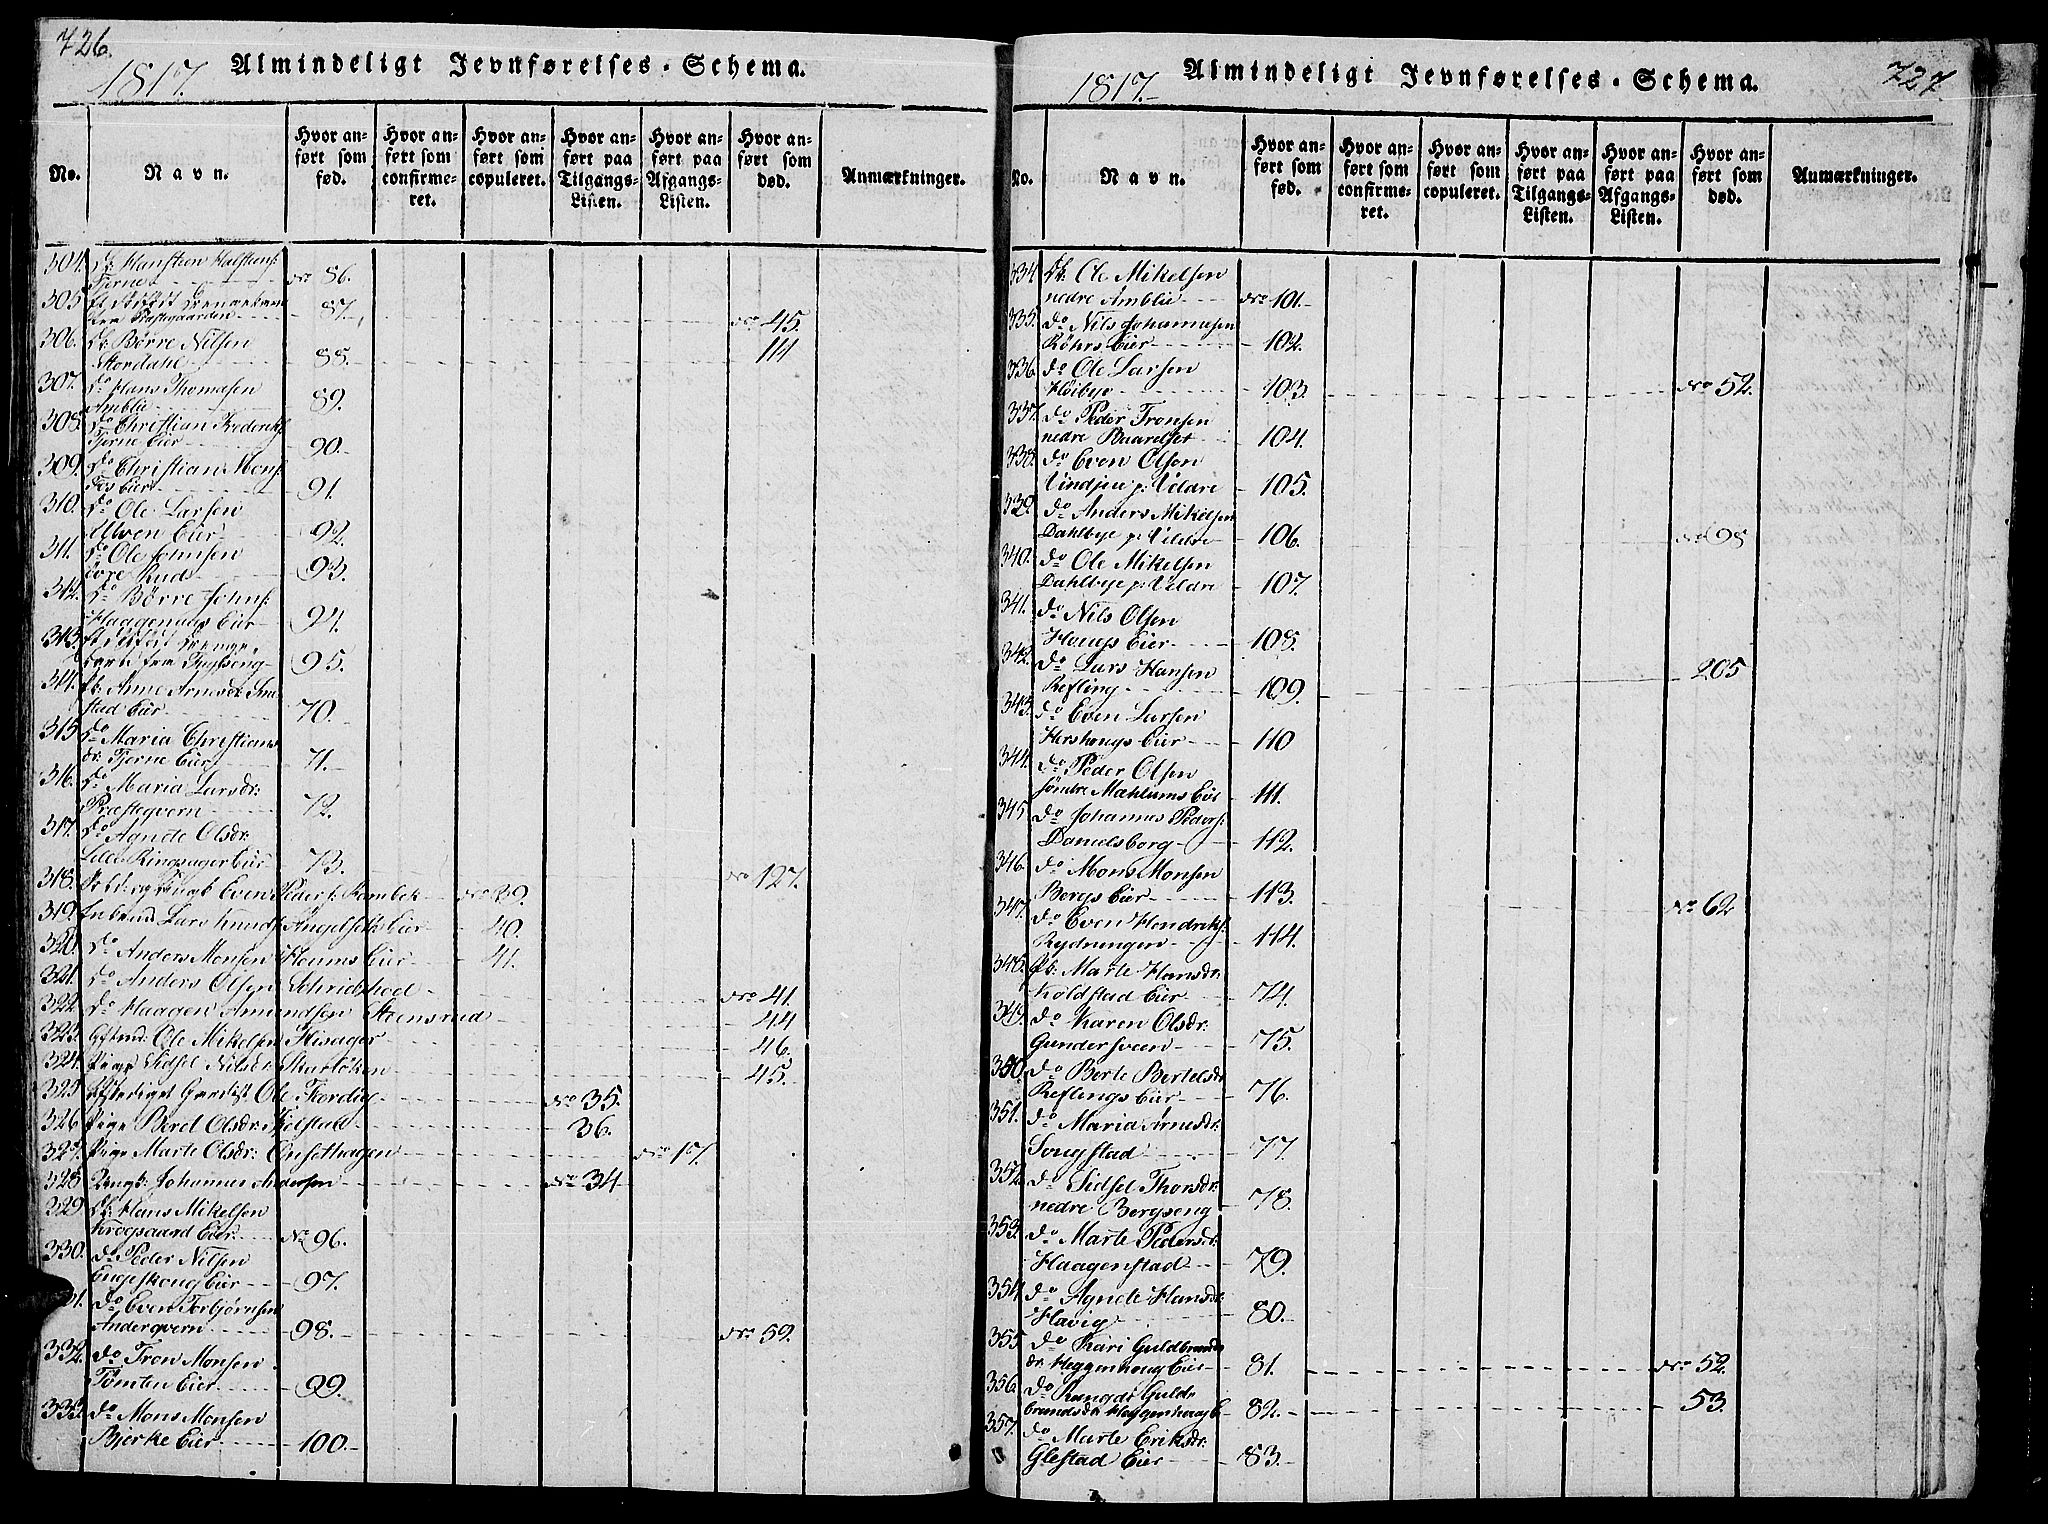 726.
1817. Almindeligt Jevnførelses-Schema.
No. Navn. Hvor anført som fød. Hvor anført som confirmeret. Hvor anført som copuleret. Hvor anført paa Tilgangs-Listen. Hvor anført paa Afgangs-Listen. Hvor anført som død. Anmærkninger.
304. Db: Hansteen
Tjerne No 86.
305
fra Præstegaarden 87. No 45.
306. Db: Børre Nilsen
Stordahl 88. 114
307. do Hans Thomasen
Amblie 89.
308. do Christian Frederiks:
Tjerne Eier 90.
309. do Christian Mons:
Eier 91.
310. do Ole Larsen
Ulven Eier 92.
311. do Ole Johnsen
øvre Rud 93.
312. do Børre Johns:
Haagenstads Eier 94.
313.
95.
314. Pb: Anne
stad Eier 70.
315 do Maria Christians
dr: Tjerne Eier 71.
316. do Maria Larsdr:
Præstegvern 72.
317. do Agnete Olsdr:
Lille Ringsager Eier 73. No 127.
318. Even Peders: No 39.
319. Lars Knuds: Eier 40.
320. do Anders Monsen Houms Eier 41.
321. do Anders Olsen No 41.
322. do Haagen Amundsen Steensrud 44
323. Ole Mikelsen 46.
324. Pige Sidsel Nilsdr 45.
325 Ole No 35.
326 Pige Beret Olsdr: 36.
327. Pige Marte Olsdr: No 17.
328 Johannes Andersen No 34
329 Db: Hans Mikelsen
Krogsaard Eier No 96.
330. do Peder Nilsen
Engeskoug Eier 97.
do Even Torbjørnsen
Andergvern 98. No 59.
332. do Tron Monsen
Tømten Eier 99.
333. do Mons Monsen
Bjerke Eier 100.
727.
1817. Almindeligt Jevnførelses-Schema.
No. Navn. Hvor anført som fød. Hvor anført som confirmeret. Hvor anført som copuleret. Hvor anført paa Tilgangs-Listen. Hvor anført paa Afgangs-Listen. Hvor anført som død. Anmærkninger.
334 Db: Ole Mikelsen
nedre Amblie No 101.
335. do Nils Johannesen
Røhrs Eier 102.
336. do Ole Larsen
Høibye 103. No 52.
337. do Peder Tronsen
nedre Baardset 104.
338. do Even Olsen
p: Veldre 105.
339. do Anders Mikelsen
Dahlbye p: Veldre 106. No 98
340. do Ole Mikelsen
Dahlbye p: Veldre 107.
341. do Nils Olsen
Hougs Eier 108.
342. do Lars Hansen
Refling 109. 205
343. do Even Larsen
Hershougs Eier 110
344. do Peder Olsen
søndre Mæhlums Eie 111.
345 do Johannes Peders:
Danielsborg 112.
346. do Mons Monsen
Bergs Eier 113. No 62
347. do Even Hendriks:
Rydningen 114.
348. Pb: Marte Hansdr:
Koldstad Eier 74.
349. do Karen Olsdr:
Gundersveen 75.
350. do Berte Bertelsdr
Reflings Eier 76.
351. do Maria Arnesdr:
Songstad 77
352. do Sidsel Thorsdr:
nedre Bergseng 78.
353. do Marte Pedersdr:
Haagenstad 79.
354. do Agnete Hansdr:
Havig 80.
355 do Kari Guldbrands
dr: Heggenhoug Eier 81. No 52.
356. do Rangdi Guld
brandsdr: Heggenhoug E 82. 53.
357. do Marte Eriksdr:
Glestad Eier 83.